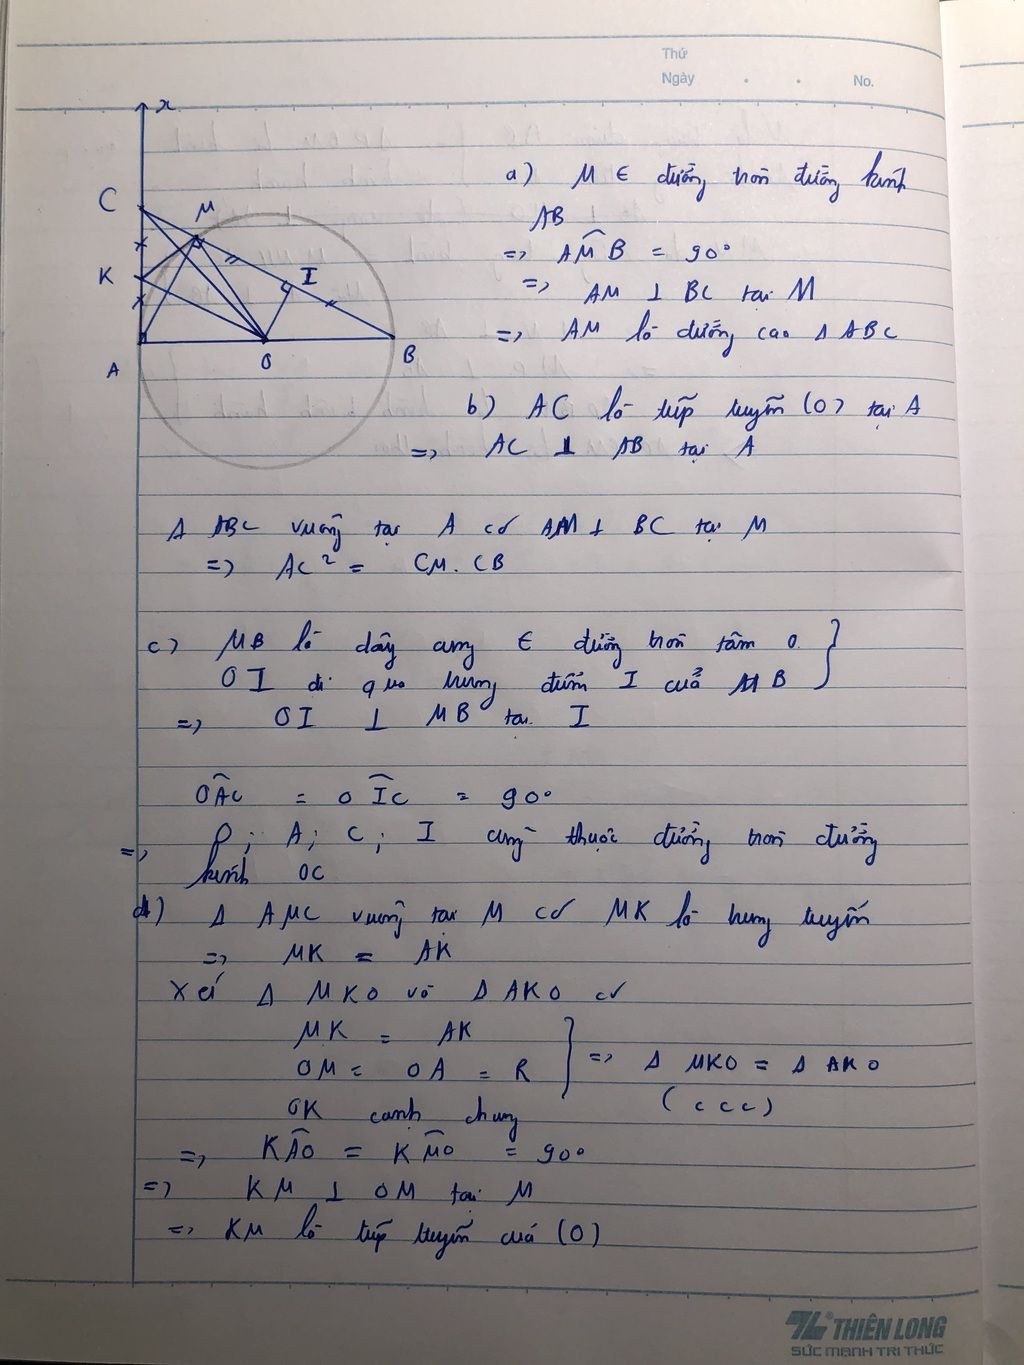 Thứ
Ngày . . No.
x
C
M
K
I
A
O
B
a) M ∈ đường tròn đường kính
AB
=> AMB = 90°
=> AM ⊥ BC tại M
=> AM là đường cao Δ ABC
b) AC là tiếp tuyến (O) tại A
=> AC ⊥ AB tại A
Δ ABC vuông tại A có AM ⊥ BC tại M
=> AC² = CM. CB
c) MB là dây cung ∈ đường tròn tâm O.
OI đi qua trung điểm I của MB
=> OI ⊥ MB tại I
OAC = OIC = 90°
=> O; A; C; I cùng thuộc đường tròn đường
kính OC
d) Δ AMC vuông tại M có MK là trung tuyến
=> MK = AK
Xét Δ MKO và Δ AKO có
MK = AK
OM = OA = R => Δ MKO = Δ AKO
OK cạnh chung (c c c)
=> KAO = KMO = 90°
=> KM ⊥ OM tại M
=> KM là tiếp tuyến của (O)
THIÊN LONG
SỨC MẠNH TRI THỨC